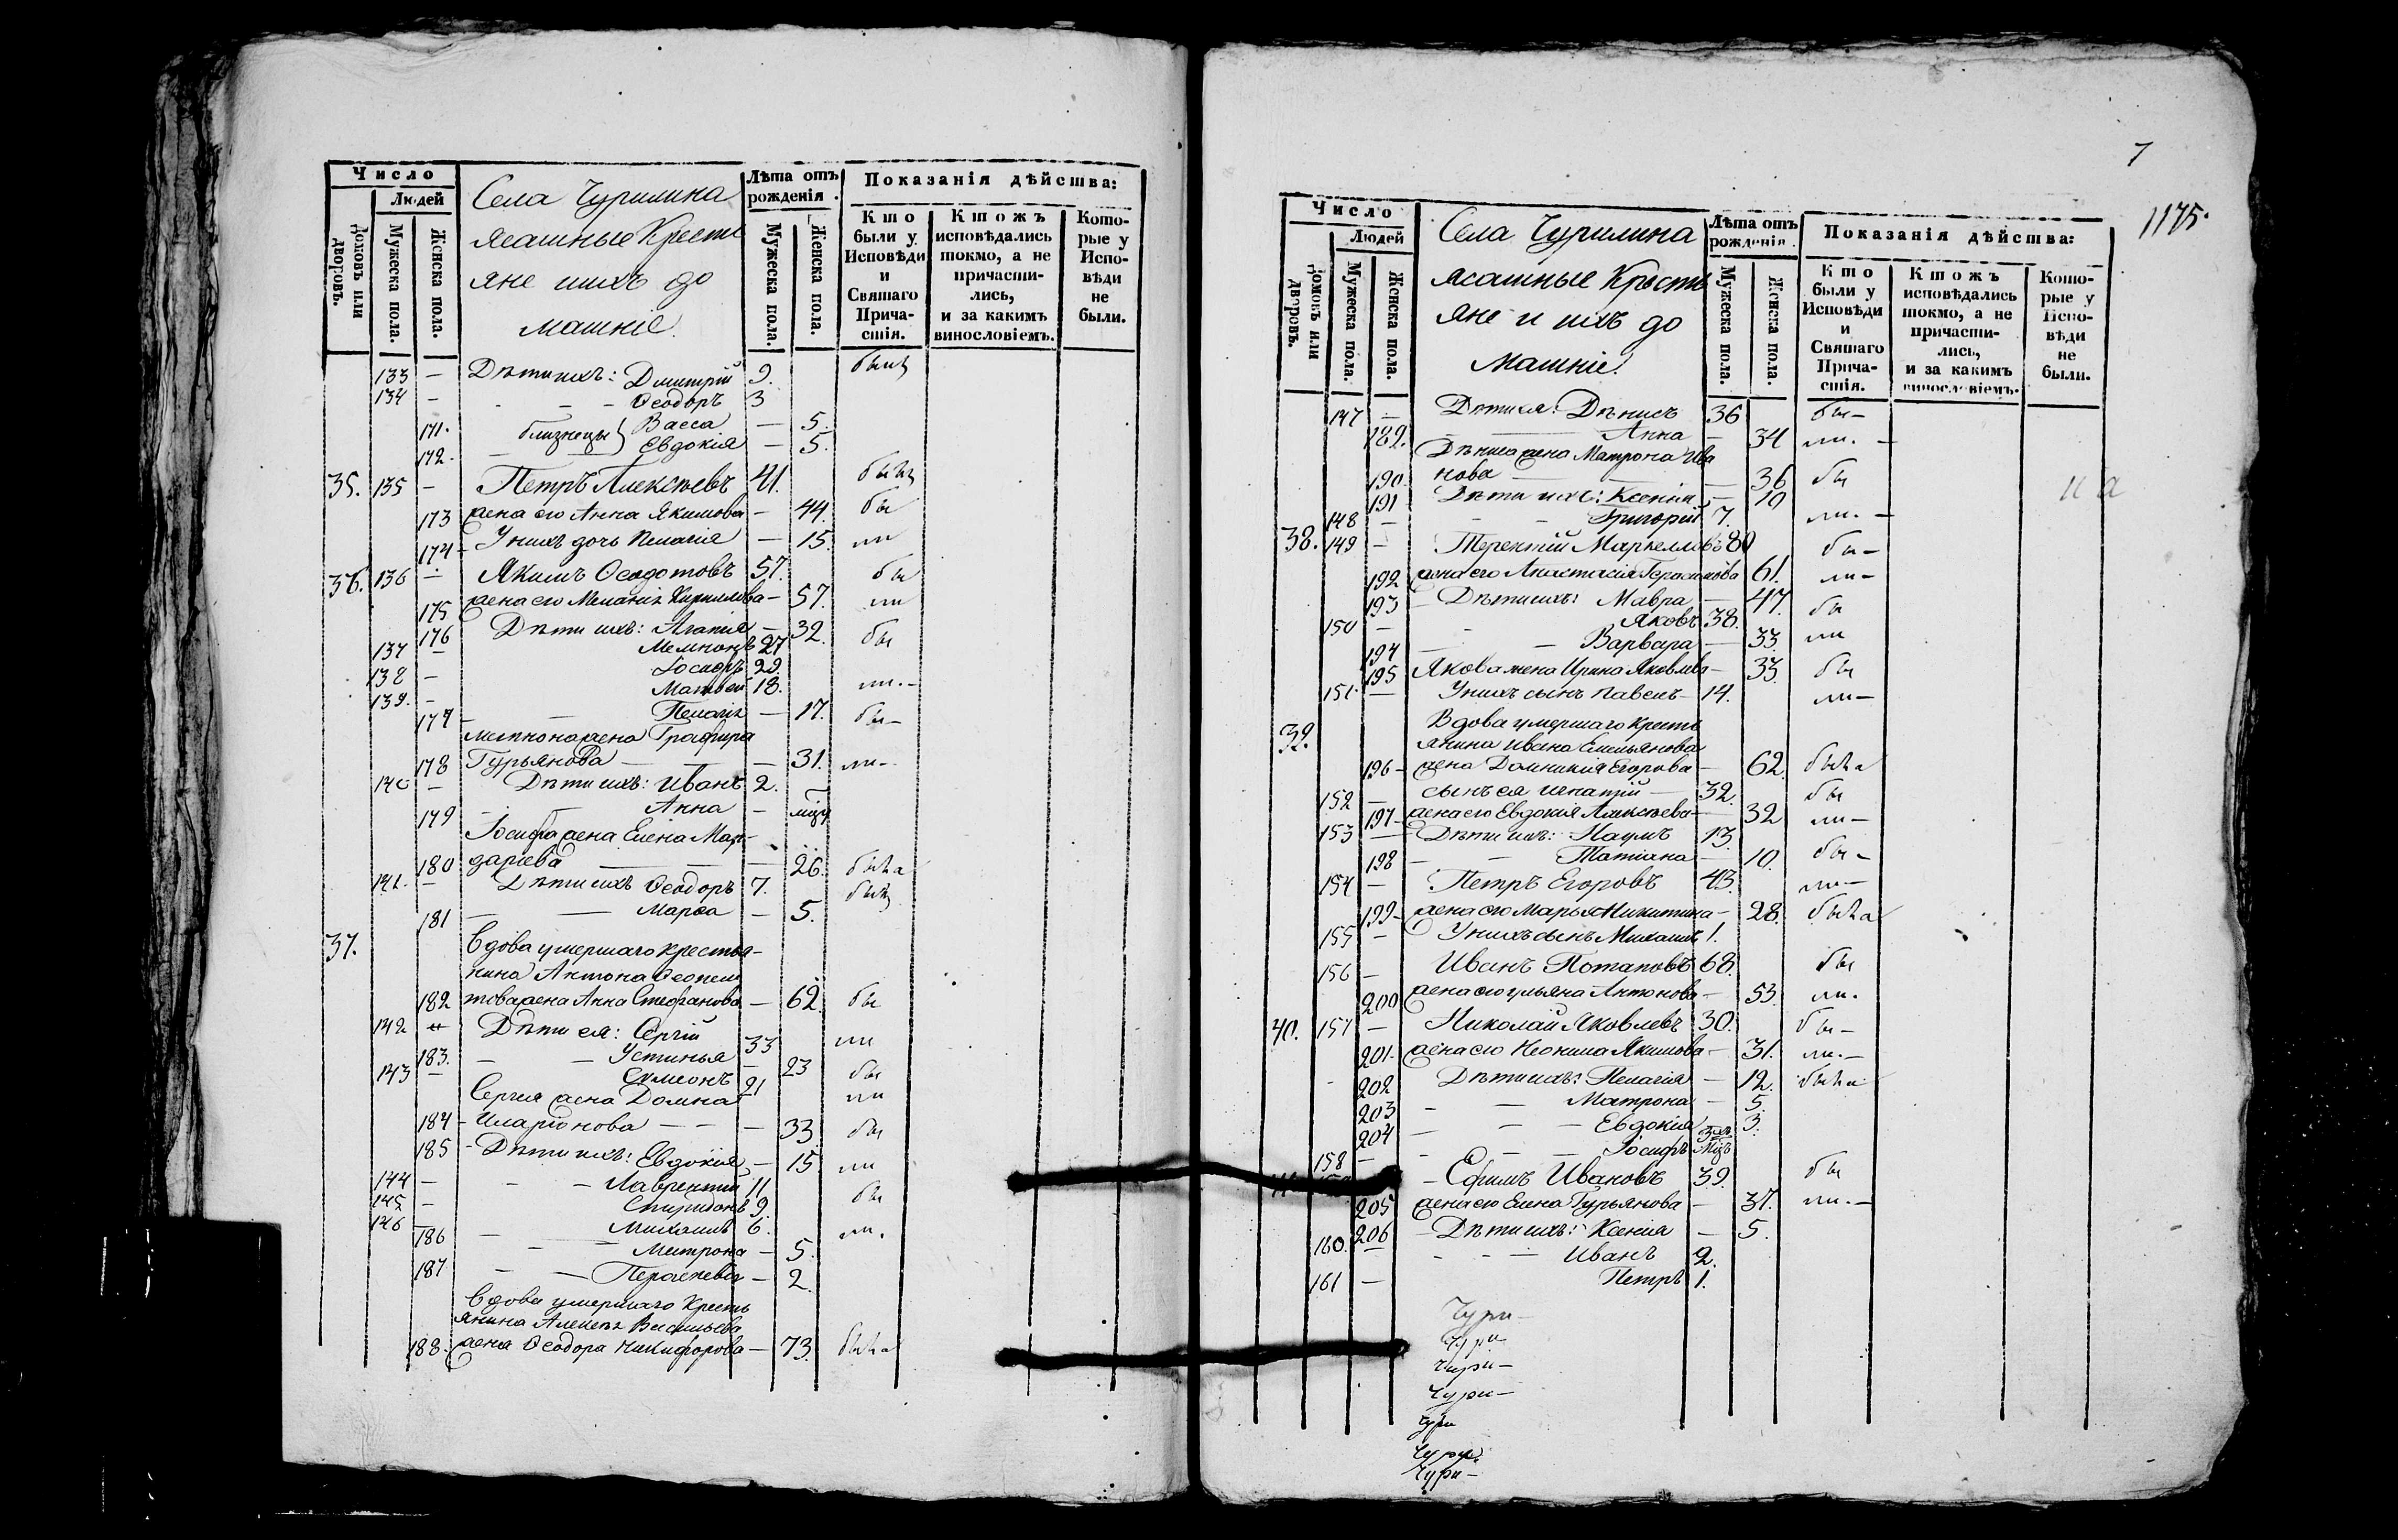 Число
Людей
Домовъ или дворовъ.
Мужеска пола.
Женска пола.
Села Чурилина
Ясашные Кресть
яне и ихъ до
машніе.
Лѣта отъ рожденія.
Мужеска пола.
Женска пола.
Показанія дѣйства:
Кто были у Исповѣди и Святаго Причастія.
Ктожъ исповѣдались токмо, а не причастились, и за какимъ винословіемъ.
Которые у Исповѣди не были.
133 — Дѣти ихъ: Дмитрій 9.
134 — Ѳеодоръ 3
171. близнецы } Васса — 5.
172. Евдокія — 5.
35. 135 — Петръ Алексѣевъ 41.
173 жена его Анна Якимова — 44. бы
174 У нихъ дочь Пелагія — 15. ли
36. 136 — Якимъ Ѳеодотовъ 57. бы
175 жена его Меланія Кириллова — 57. ли
176 Дѣти ихъ: Агапія — 32. бы
137 — Мемнонъ 27
138 — Іосифъ 22.
139. — Матвей 18. ли. —
177 — Пелагія — 17. бы —
Мемнона жена Графира
178 Гурьянова — 31. ли —
140 — Дѣти ихъ: Иванъ 2.
179 Анна —
Іосифа жена Елена Мар-
180 даріева — 26. была
141. — Дѣти ихъ Ѳеодоръ 7.
181 Марѳа — 5.
37. Вдова умершаго крестья-
нина Антона Ѳеопем
182 това жена Анна Стефанова — 62. бы
142 Дѣти ея: Сергій 33 ли
183. Устинья — 23 бы
143 — Симеонъ 21 ли
Сергія жена Домна
184 — Иларіонова — 33 бы
185 — Дѣти ихъ: Евдокія — 15 ли
144 — Лаврентій 11 бы
145 — Спиридонъ 9.
146 — Михаилъ 6. ли.
186 Матрона — 5.
187 Параскевія — 2
Вдова умершаго Кресть
янина Алексѣя Васильева
188. жена Ѳеодора Никифорова — 73. была
7
1175.
Число
Людей
Домовъ или дворовъ.
Мужеска пола.
Женска пола.
Села Чурилина
Ясашные Кресть
яне и ихъ до
машніе.
Лѣта отъ рожденія.
Мужеска пола.
Женска пола.
Показанія дѣйства:
Кто были у Исповѣди и Святаго Причастія.
Ктожъ исповѣдались токмо, а не причастились, и за какимъ винословіемъ.
Которые у Исповѣди не были.
147 — Дѣти ея: Дѣнисъ 36 бы —
189. Анна — 34 ли. —
Дѣниса жена Матрона Ива
190. нова — 36 бы
191 Дѣти ихъ: Ксенія — 10
148 — Григорій 7. ли. —
38. 149 — Терентій Маркелловъ 80 бы —
192 жена его Анастасія Герасимова 61. ли —
193 — Дѣти ихъ: Мавра — 47. бы
150 — Яковъ 38. ли
194 — Варвара — 33.
195 Якова жена Ирина Яковлева — 33. бы
151. — У нихъ сынъ Павелъ — 14. ли —
39. Вдова умершаго Кресть
янина Ивана Емельянова
196 — жена Домникія Егорова — 62. была
152 — сынъ ея Игнатій — 32. бы
197 — жена его Евдокія Алексѣева — 32 ли —
153 — Дѣти ихъ: Наумъ 13.
198 — Татіана — 10. бы —
154 — Петръ Егоровъ 43. ли —
199 — жена его Марья Никитина — 28. была
155 — У нихъ сынъ Михаилъ 1.
156 — Иванъ Потаповъ 68. бы
200 жена его Ульяна Антонова — 53. ли.
40. 157 — Николай Яковлевъ 30. бы —
201. жена его Неонила Якимова — 31. ли. —
202 Дѣти ихъ: Пелагія — 12. была
203 — Матрона — 5.
204 — Евдокія 3.
158 — Іосифъ
— Ефимъ Ивановъ 39. бы
205 жена его Елена Гурьянова — 37. ли. —
206 — Дѣти ихъ: Ксенія — 5.
160. — Иванъ 2.
161 — Петръ 1.
Чури —
Чури
Чури —
Чури —
Чури
Чури
Чури —